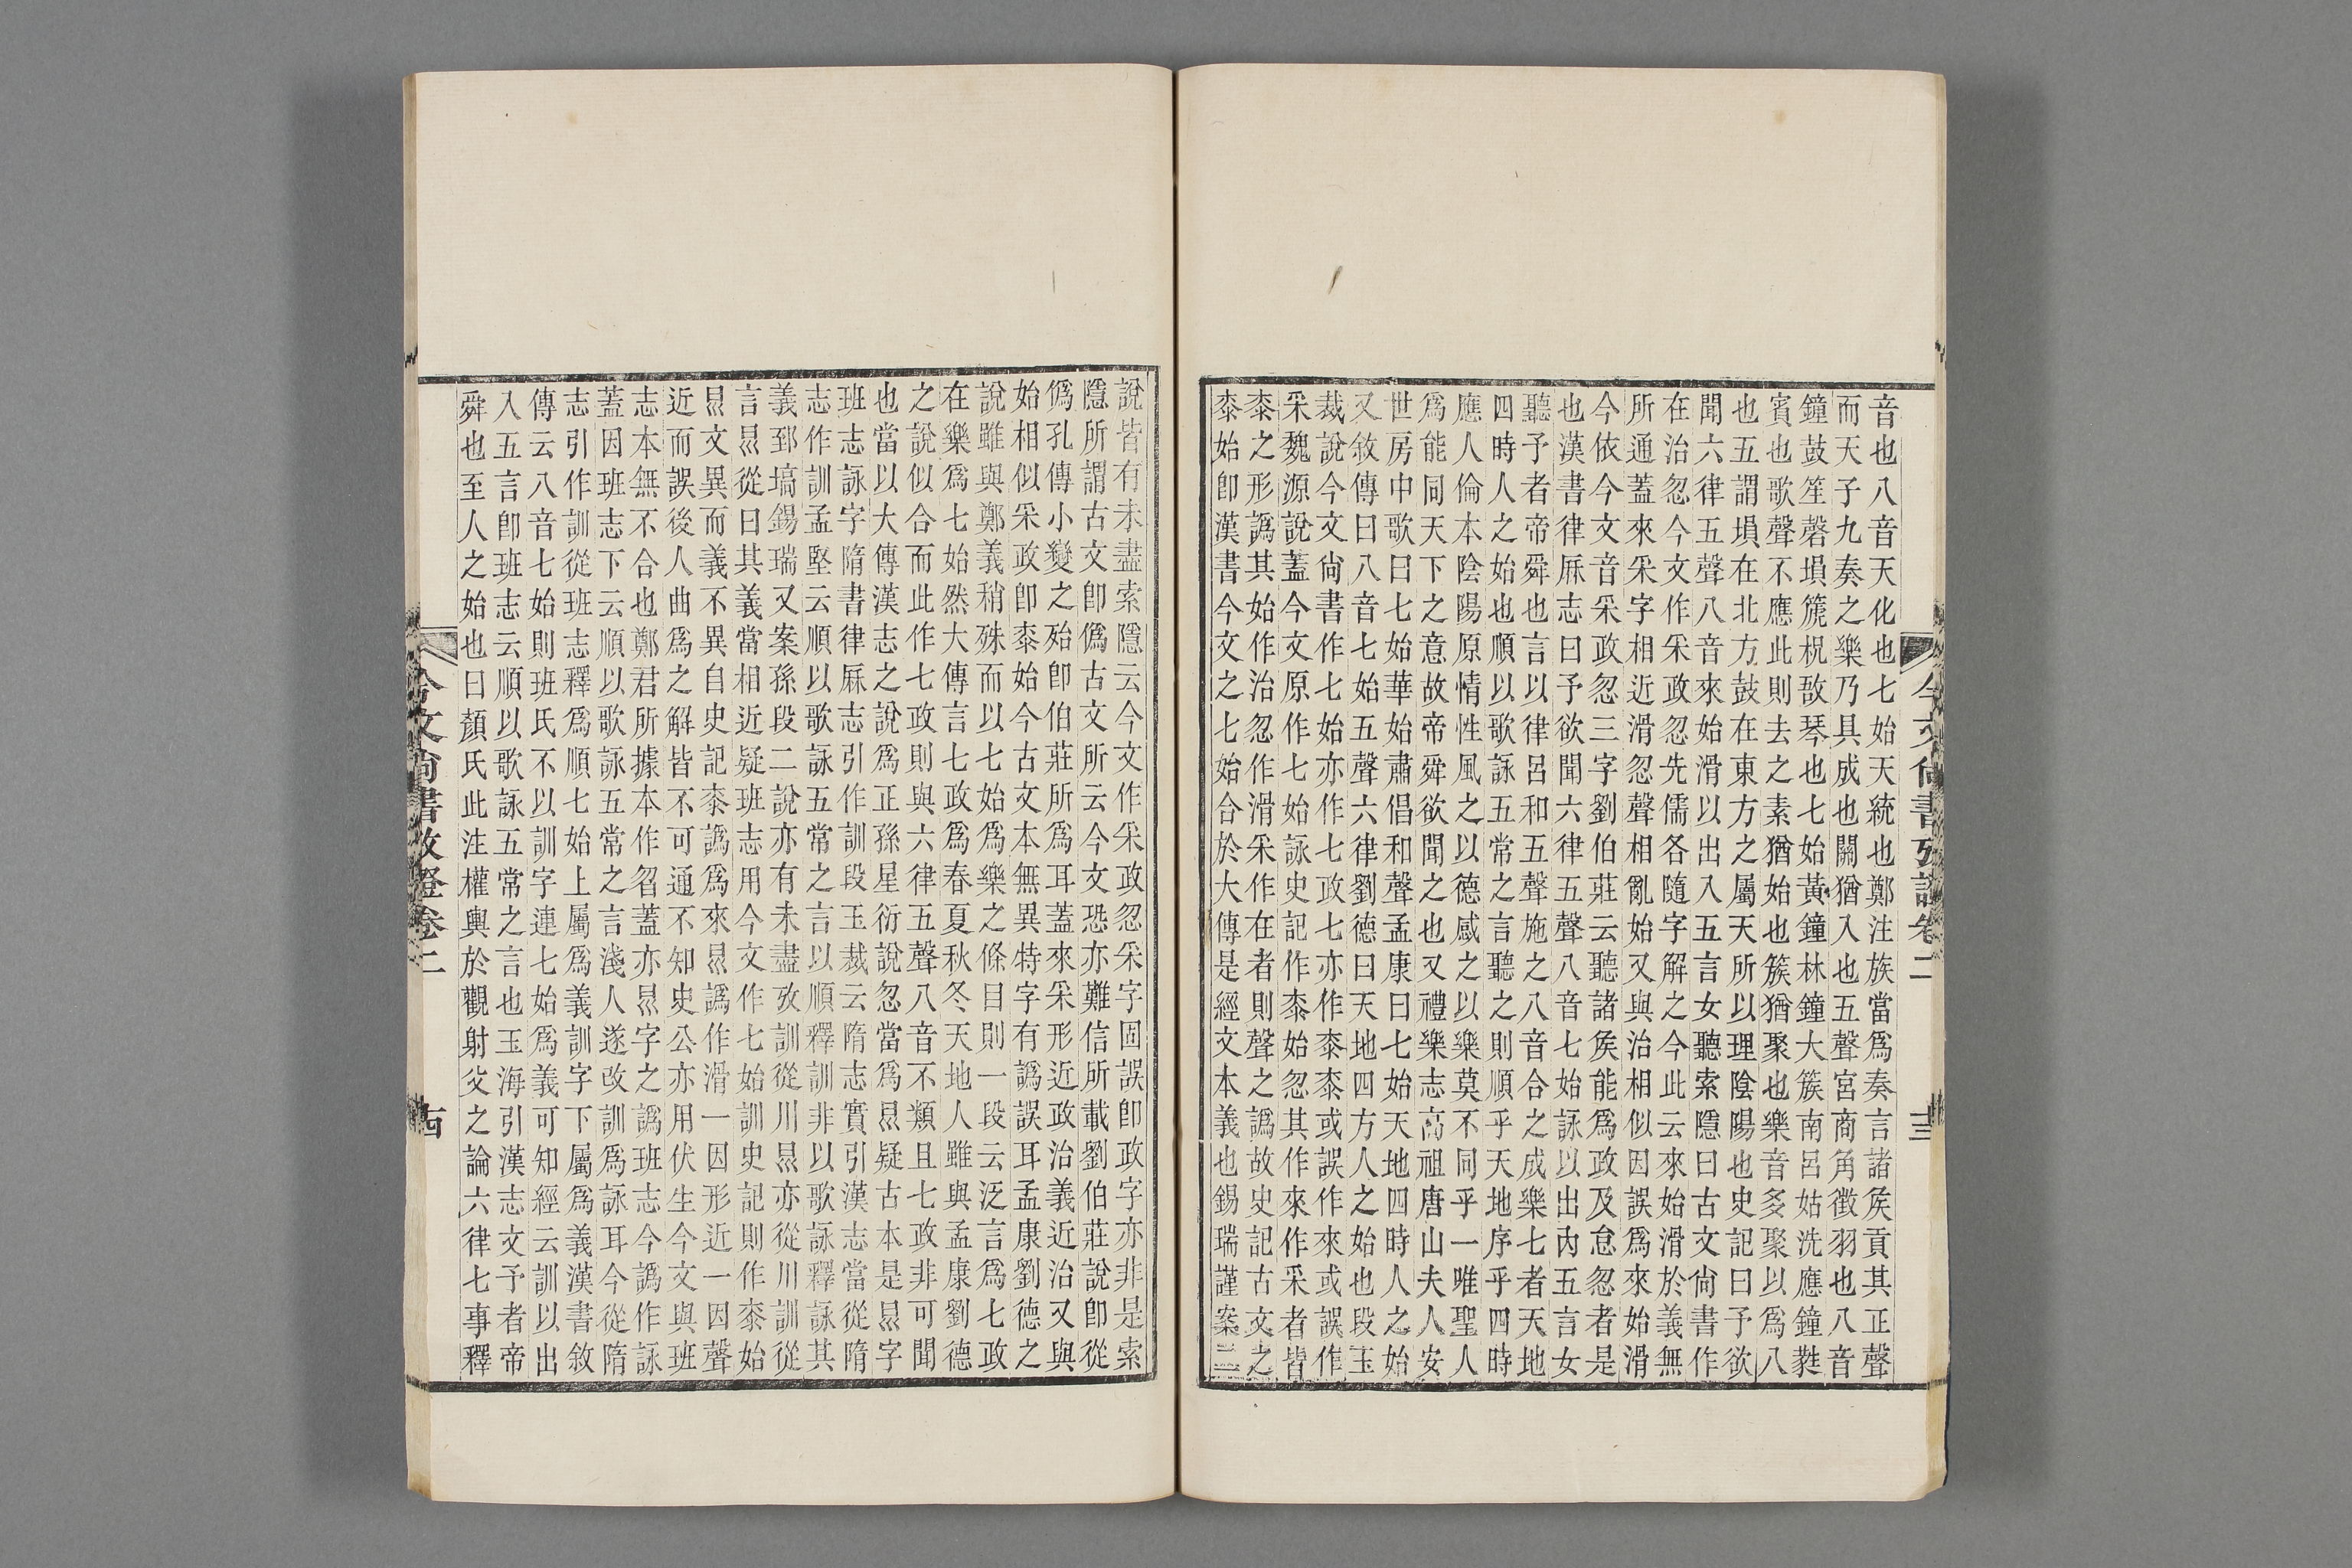 音也八音天化也七始天統也鄭注族當爲奏言諸矦貢其正聲
而天子九奏之樂乃具成也關猶入也五聲宮商角徵羽也八音
鐘鼓笙磬塤篪柷敔琴也七始黃鐘林鐘大簇南呂姑洗應鐘蕤
賓也歌聲不應此則去之素猶始也簇猶聚也樂音多聚以爲八
也五謂塤在北方鼓在東方之屬天所以理陰陽也史記曰予欲
聞六律五聲八音來始滑以出入五言女聽索隱曰古文尙書作
在治忽今文作采政忽先儒各隨字解之今此云來始滑於義無
所通蓋來采字相近滑忽聲相亂始又與治相似因誤爲來始滑
今依今文音采政忽三字劉伯莊云聽諸矦能爲政及怠忽者是
也漢書律厤志曰予欲聞六律五聲八音七始詠以出內五言女
聽予者帝舜也言以律呂和五聲施之八音合之成樂七者天地
四時人之始也順以歌詠五常之言聽之則順乎天地序乎四時
應人倫本陰陽原情性風之以德感之以樂莫不同乎一唯聖人
爲能同天下之意故帝舜欲聞之也又禮樂志高祖唐山夫人安
世房中歌曰七始華始肅倡和聲孟康曰七始天地四時人之始
又敘傳曰八音七始五聲六律劉德曰天地四方人之始也段玉
裁說今文尙書作七始亦作七政七亦作桼桼或誤作來或誤作
采魏源說蓋今文原作七始詠史記作桼始忽其作來作采者皆
桼之形譌其始作治忽作滑采作在者則聲之譌故史記古文之
桼始卽漢書今文之七始合於大傳是經文本義也錫瑞謹案二
今文尙書攷證卷二
十三
說皆有未盡索隱云今文作采政忽采字固誤卽政字亦非是索
隱所謂古文卽僞古文所云今文恐亦難信所載劉伯莊說卽從
僞孔傳小變之殆卽伯莊所爲耳蓋來采形近政治義近治又與
始相似采政卽桼始今古文本無異特字有譌誤耳孟康劉德之
說雖與鄭義稍殊而以七始爲樂之條目則一段云泛言爲七政
在樂爲七始然大傳言七政爲春夏秋冬天地人雖與孟康劉德
之說似合而此作七政則與六律五聲八音不類且七政非可聞
也當以大傳漢志之說爲正孫星衍說忽當爲㫚疑古本是㫚字
班志詠字隋書律厤志引作訓段玉裁云隋志實引漢志當從隋
志作訓孟堅云順以歌詠五常之言以順釋訓非以歌詠釋詠其
義郅塙錫瑞又案孫段二說亦有未盡攷訓從川㫚亦從川訓從
言㫚從曰其義當相近疑班志用今文作七始訓史記則作桼始
㫚文異而義不異自史記桼譌爲來㫚譌作滑一因形近一因聲
近而誤後人曲爲之解皆不可通不知史公亦用伏生今文與班
志本無不合也鄭君所據本作曶蓋亦㫚字之譌班志今譌作詠
蓋因班志下云順以歌詠五常之言淺人遂改訓爲詠耳今從隋
志引作訓從班志釋爲順七始上屬爲義訓字下屬爲義漢書敘
傳云八音七始則班氏不以訓字連七始爲義可知經云訓以出
入五言卽班志云順以歌詠五常之言也玉海引漢志文予者帝
舜也至人之始也曰顏氏此注權輿於觀射父之論六律七事釋
今文尙書攷證卷二
十四